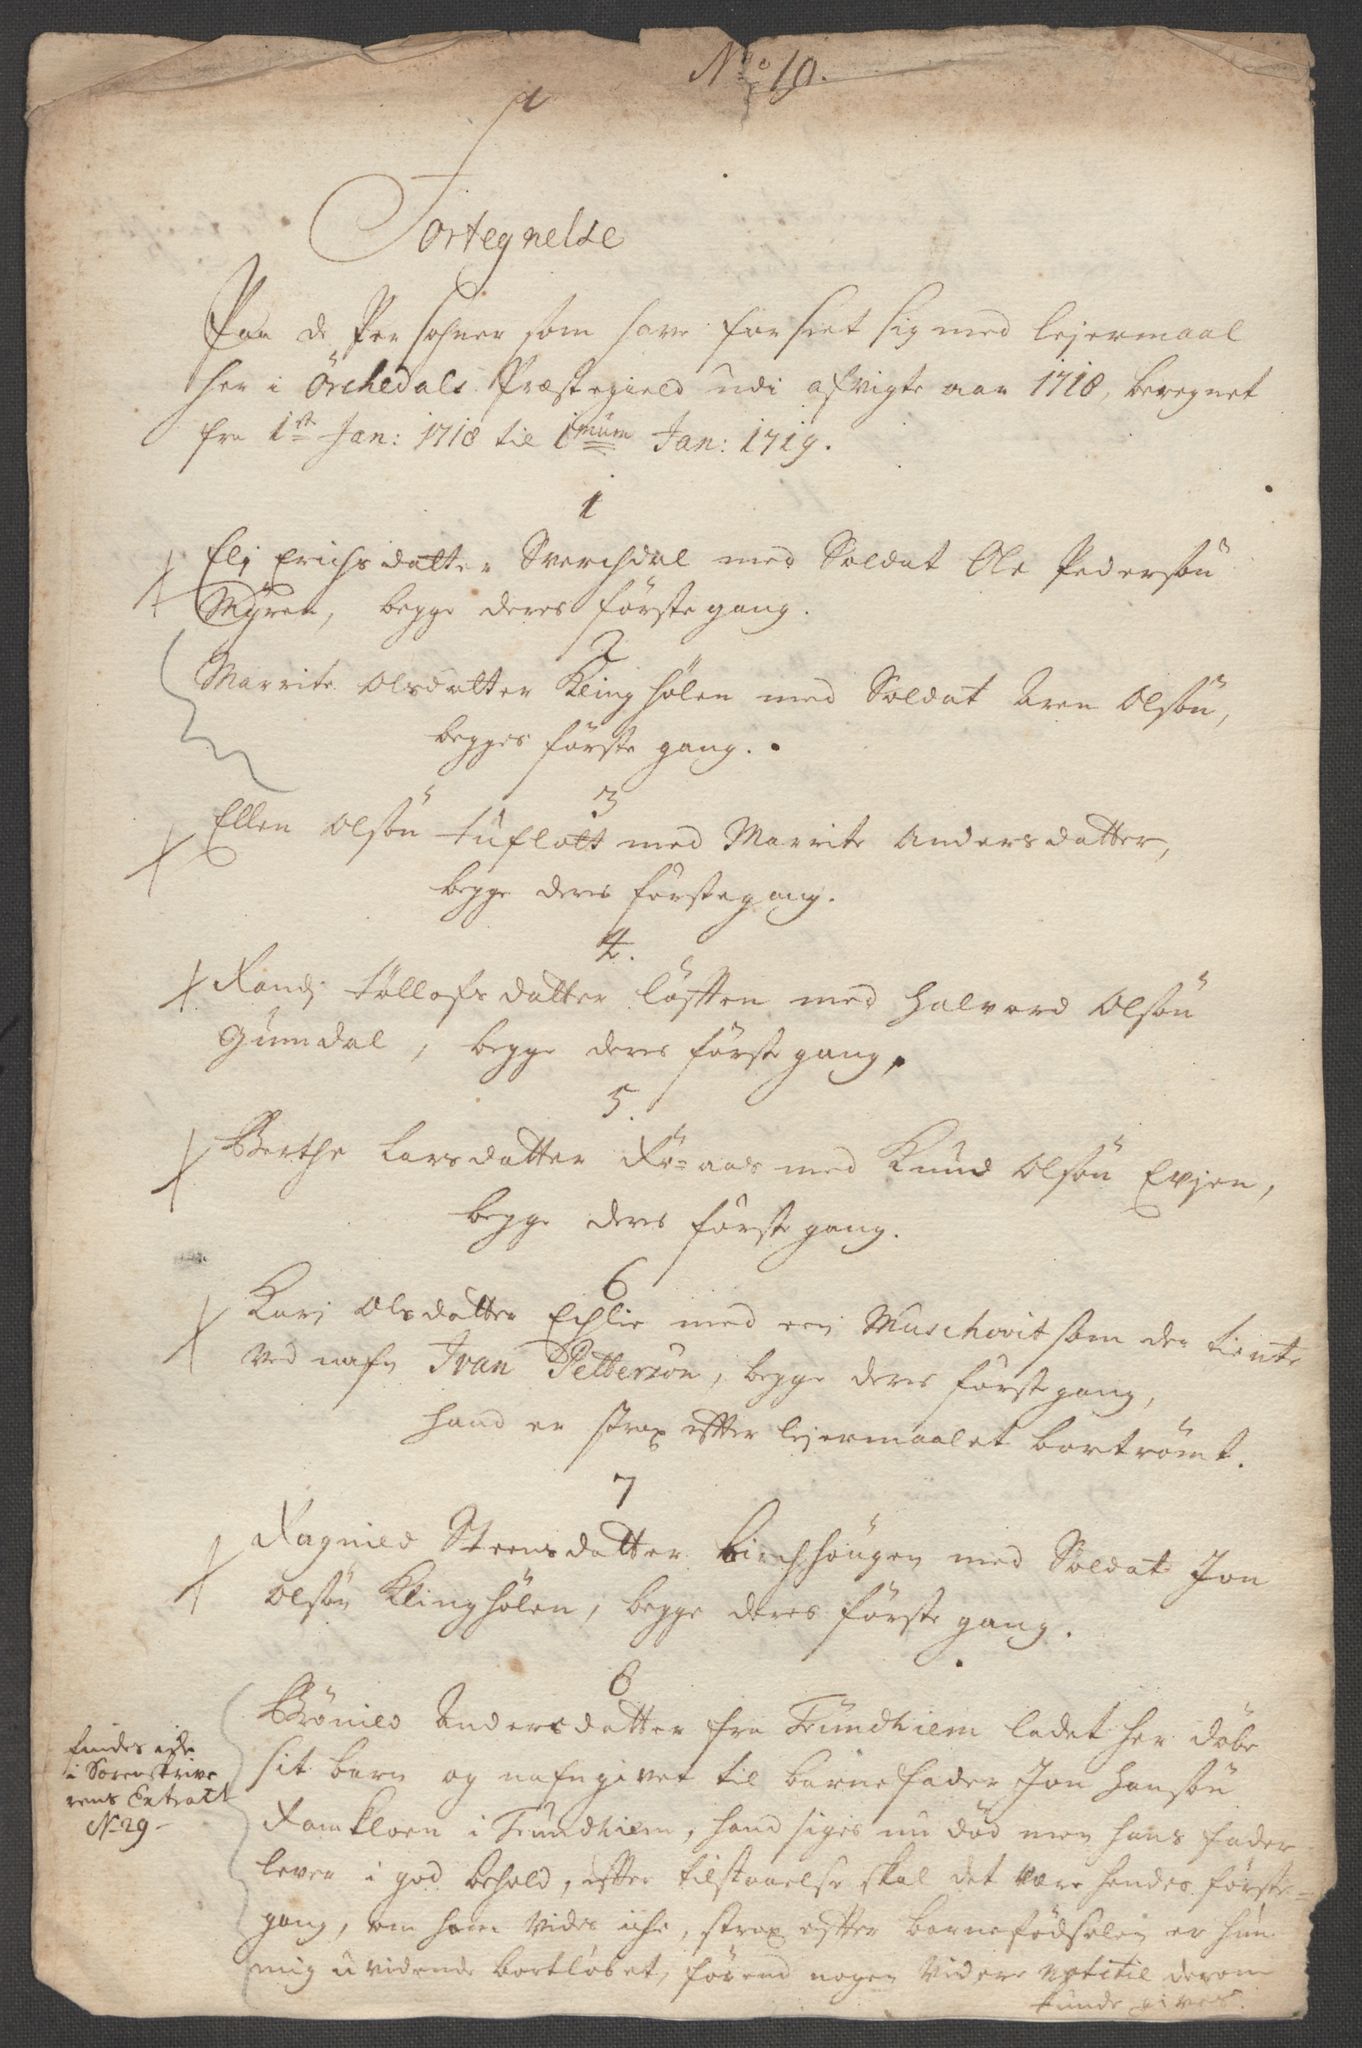 No 10.
Fortegnelse
Paa de Persohner som have forseet sig med lejermaal
her i Örchedals Præstegield udi afvigte aar 1718, beregnet
fra 1ste Jan: 1718 til 1mum Jan: 1719.
1
Eli Erichsdatter Sverchdal med Soldat Ole Pedersøn
Myren, begge deres første gang.
2
Marrite Olsdatter Klinghølen med Soldat Aren Olsøn,
begges første gang.
3
Ellen Olsøn tuflatt med Marrite Andersdatter,
begge deres første gang.
4.
Randj tøllofsdatter løften med Halvord Olsøn
Gumdal, begge deres første gang,
5.
Berthe Larsdatter Rø-aas med Knud Olsøn Evjen,
begge deres første gang.
6
Karj Olsdatter Echlie med een Muschovit som der tiente
ved nafn Ivan Petterzøn, begge deres første gang,
hand er strax efter lejermaalet bortrømt.
7
Ragnild Steensdatter Birchhougen med Soldat Jon
Olsøn Klinghølen, begge deres første gang.
8
Brønild Andersdatter fra Trundhiem ladet her døbe
sit barn og nafngivet til barnefader Jon Hansøn
Ramkloen i Trundhiem, hand siges nu død men hans fader
lever i god behold, efter tilstaaelse skal det være hendes første
gang, om ham vides iche, strax efter barnefødselen er hun
mig uvidende bortløbet, førend nogen videre notitie derom
kunde gives.
findes iche
i Sorenskrive
rens Extract
No 29